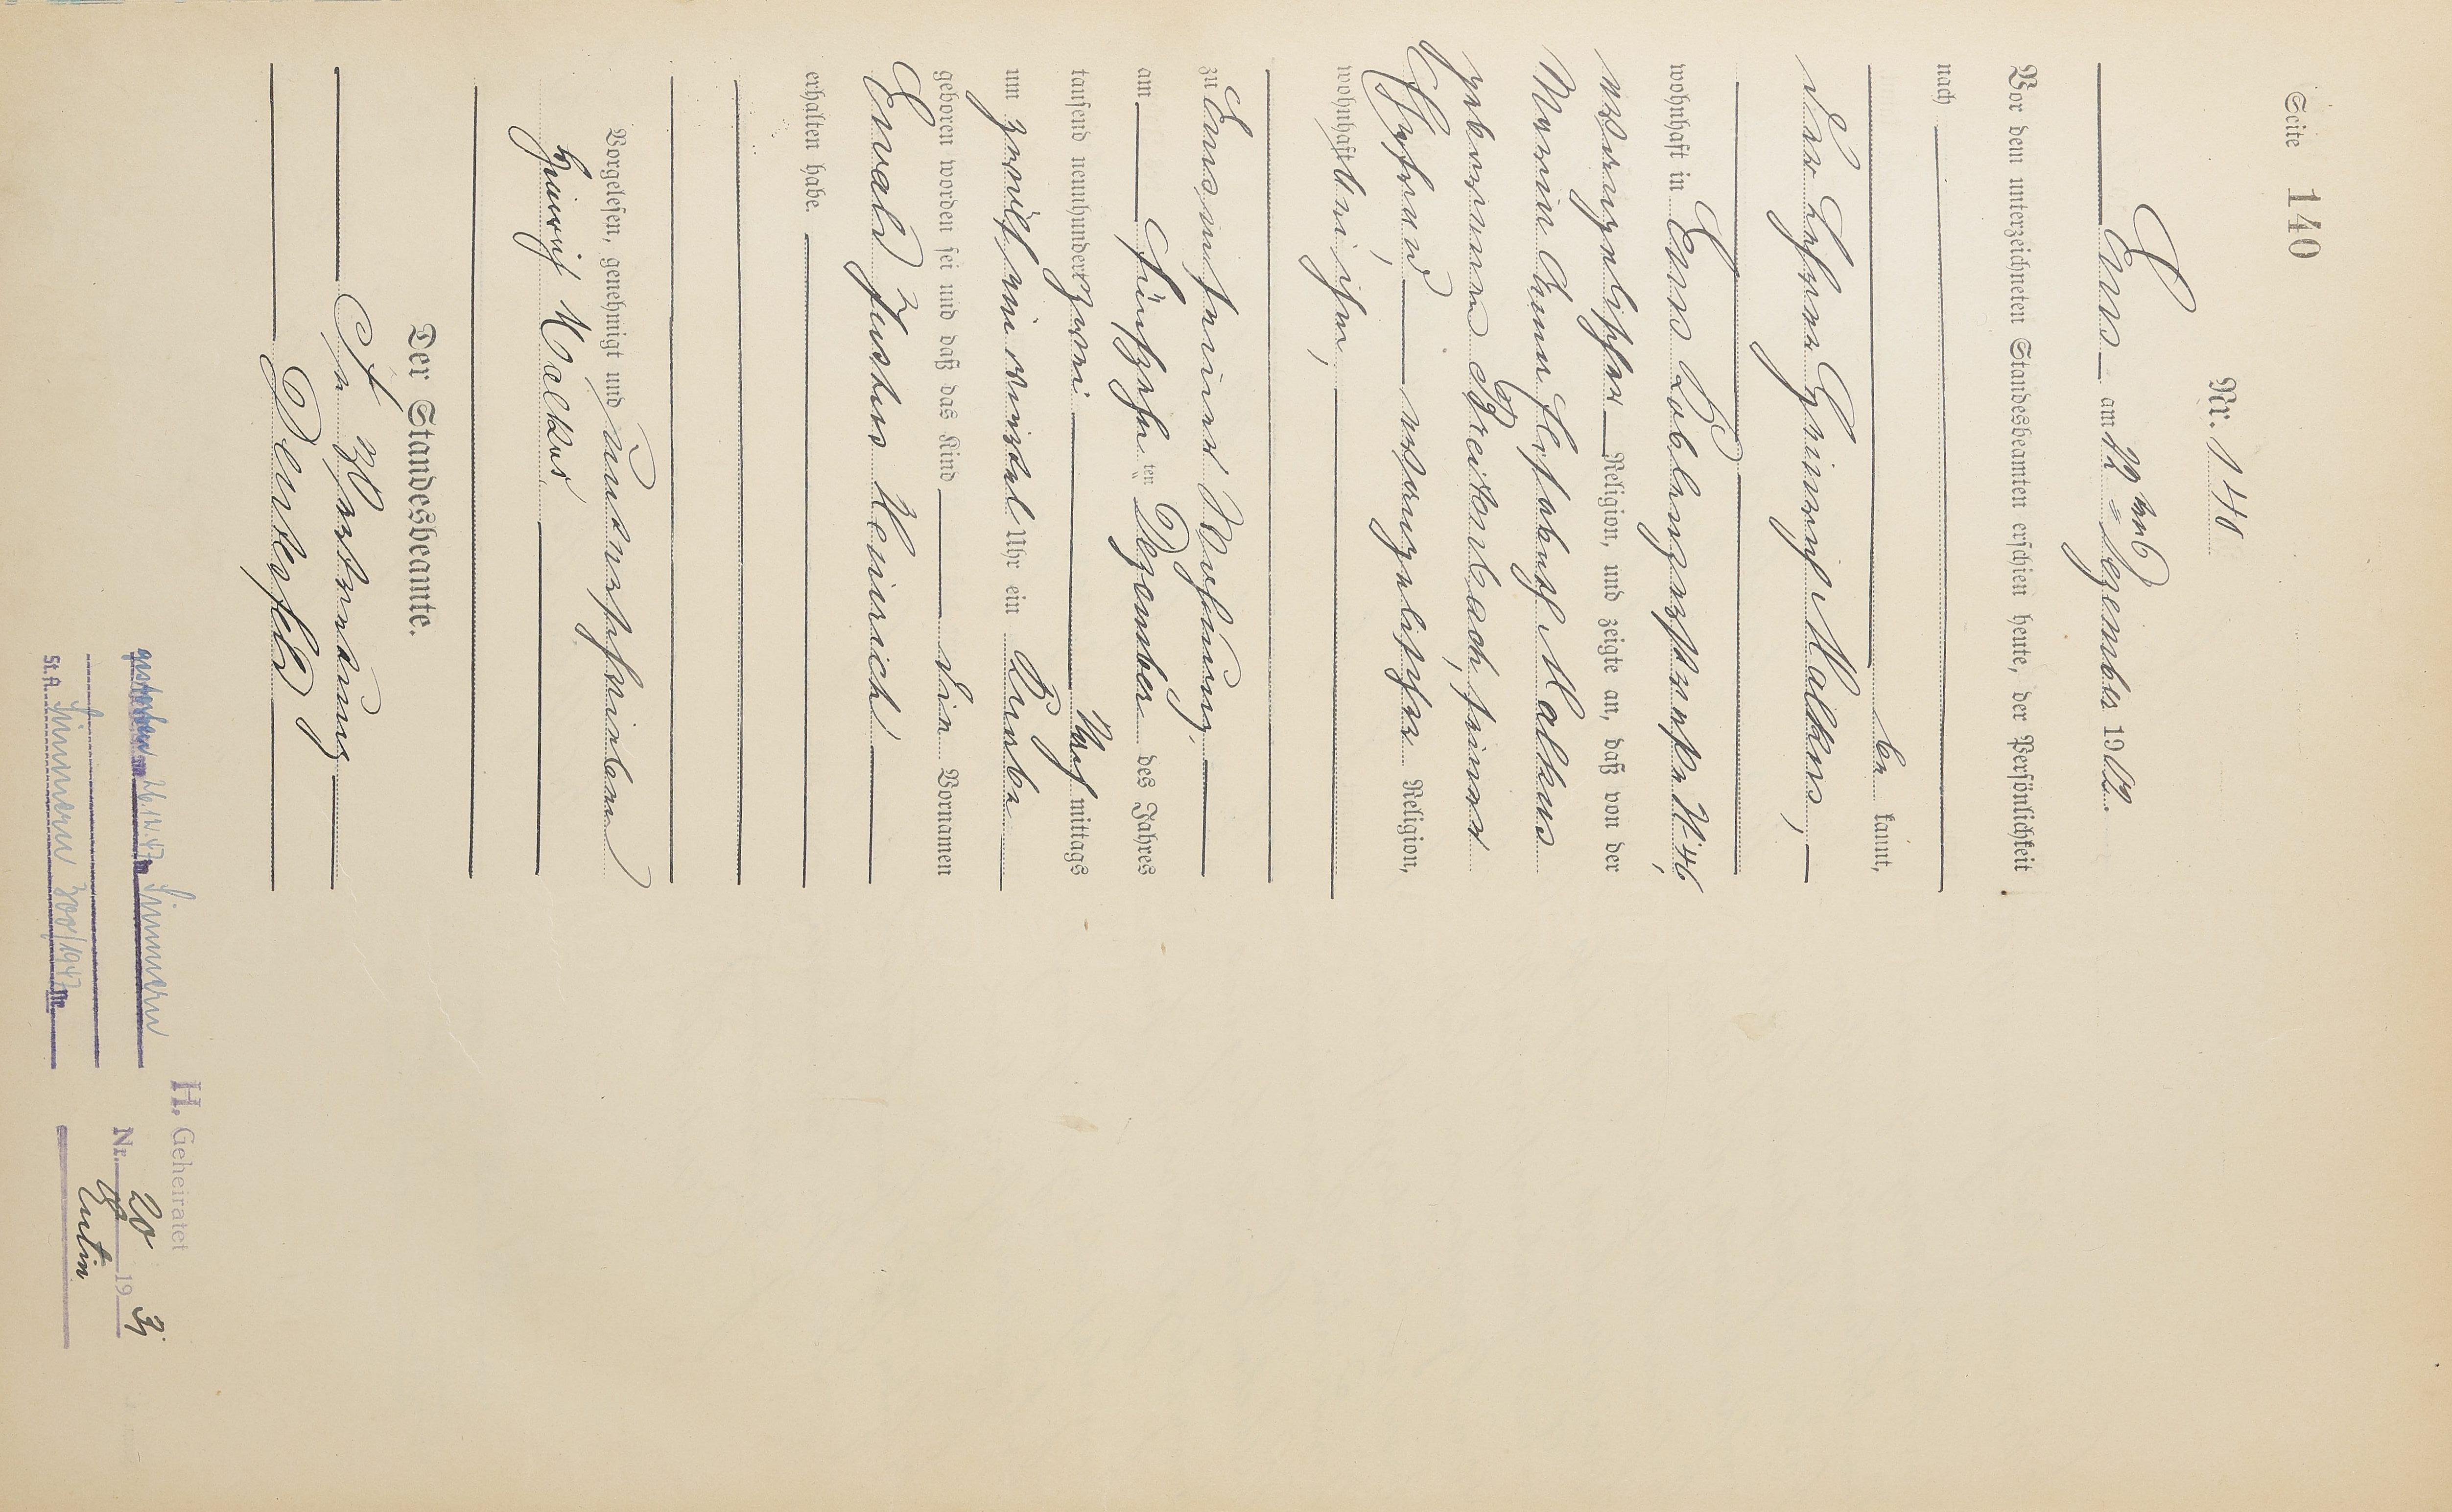 Seite 140
Nr. 140
Ems am 22ten Dezember 1902.
Vor dem unterzeichneten Standesbeamten erschien heute, der Persönlichkeit
nach
be kannt,
der Lehrer Heinrich Malkus,
wohnhaft in Ems Coblenzerstraße N. 46,
evangelischer Religion, und zeigte an, daß von der
Maria Anna Elisabeth Malkus
geborenen Breitenbach, seiner
Ehefrau, evangelischer Religion,
wohnhaft bei ihm,
zu Ems in seiner Wohnung,
am fünfzehnten Dezember des Jahres
tausend neunhundert zwei Nach mittags
um zwölf ein viertel Uhr ein Knabe
geboren worden sei und daß das Kind die Vornamen
Ewald Justus Heinrich
erhalten habe.
Vorgelesen, genehmigt und unterschrieben
Heinrich Malkus
Der Standesbeamte.
In Vertretung
gestorben am 26.IV.47 in Simmern
St.A. Simmern 300/1947 Nr.
H. Geheiratet
Nr. 20 19 31